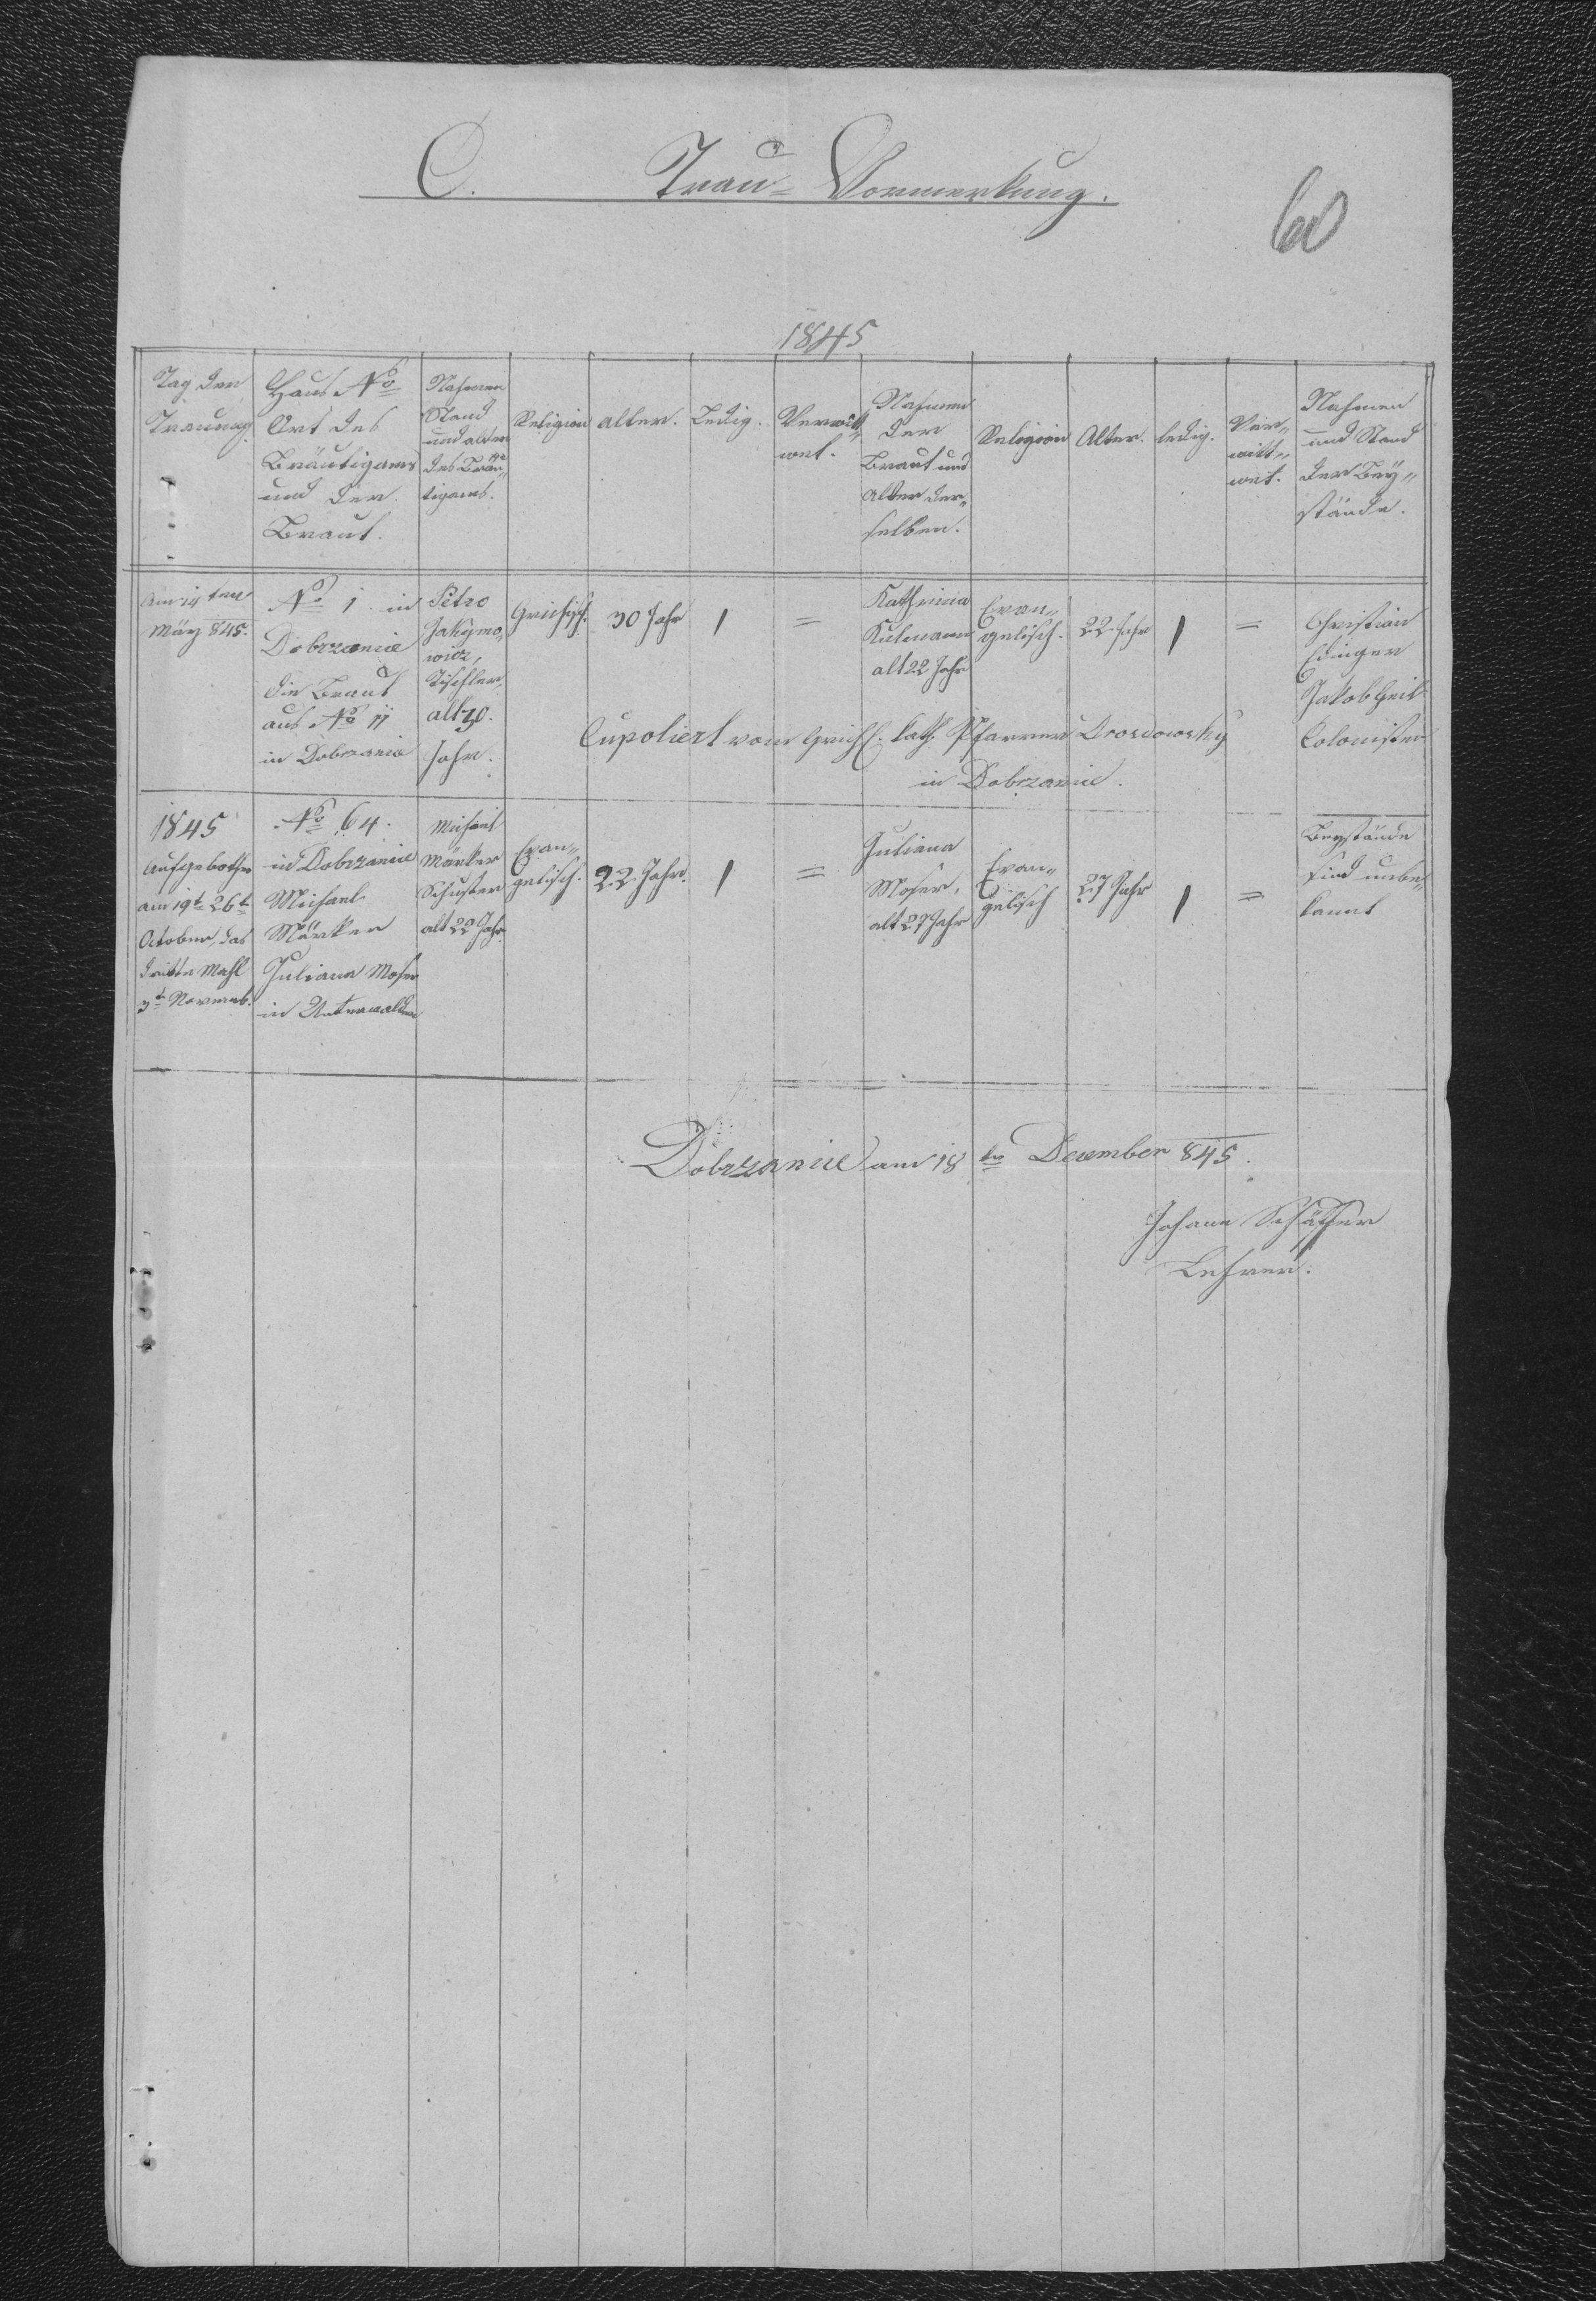 C. Trau=Vormerkung.
60
1845
Tag der
Trauung.
Haus No
Ort des
Bräutigams
und der
Braut.
Nahmen
Stand
und alter
des Bräu„
tigams.
Religion
alter.
Ledig.
Verwitt„
wet.
Nahmen
der
Braut und
Alter der„
selben.
Religion
Alter.
ledig.
Ver„
witt„
wet.
Nahmen
und Stand
der Bey„
stände.
ten
März 845.
No 1 in
Dobrzanice
die Braut
aus No 11
in Dobrzanice
Petro
Jakÿmo„
wicz,
Tischler,
alt 30.
Jahr.
Griechisch.
30 Jahr
1
=
Kathrina
Kulmann
alt 22 Jahr
Evan„
gelisch.
22 Jahr
1
=
Christian
Edinger
Jakob Geib
Colonisten
Cupoliert vom Griech. kath. Pfarrer Drosdowskÿ
in Dobrzanice.
1845
Aufgebothen
am 19t 26t
October, das
dritte Mahl
3t Novemb.
No 64.
in Dobrzanice
Michael
Märker
Juliana Moser
in Unterwalden
Michael
Märker
Schuster
alt 22 Jahr
Evan„
gelisch.
22 Jahr.
1
=
Juliana
Moser,
alt 27 Jahr
Evan„
gelisch
27 Jahr
1
=
Beystände
sind unbe„
kannt
Dobrzanice am 18ten December 845.
Johann Schäffer
Lehrer.